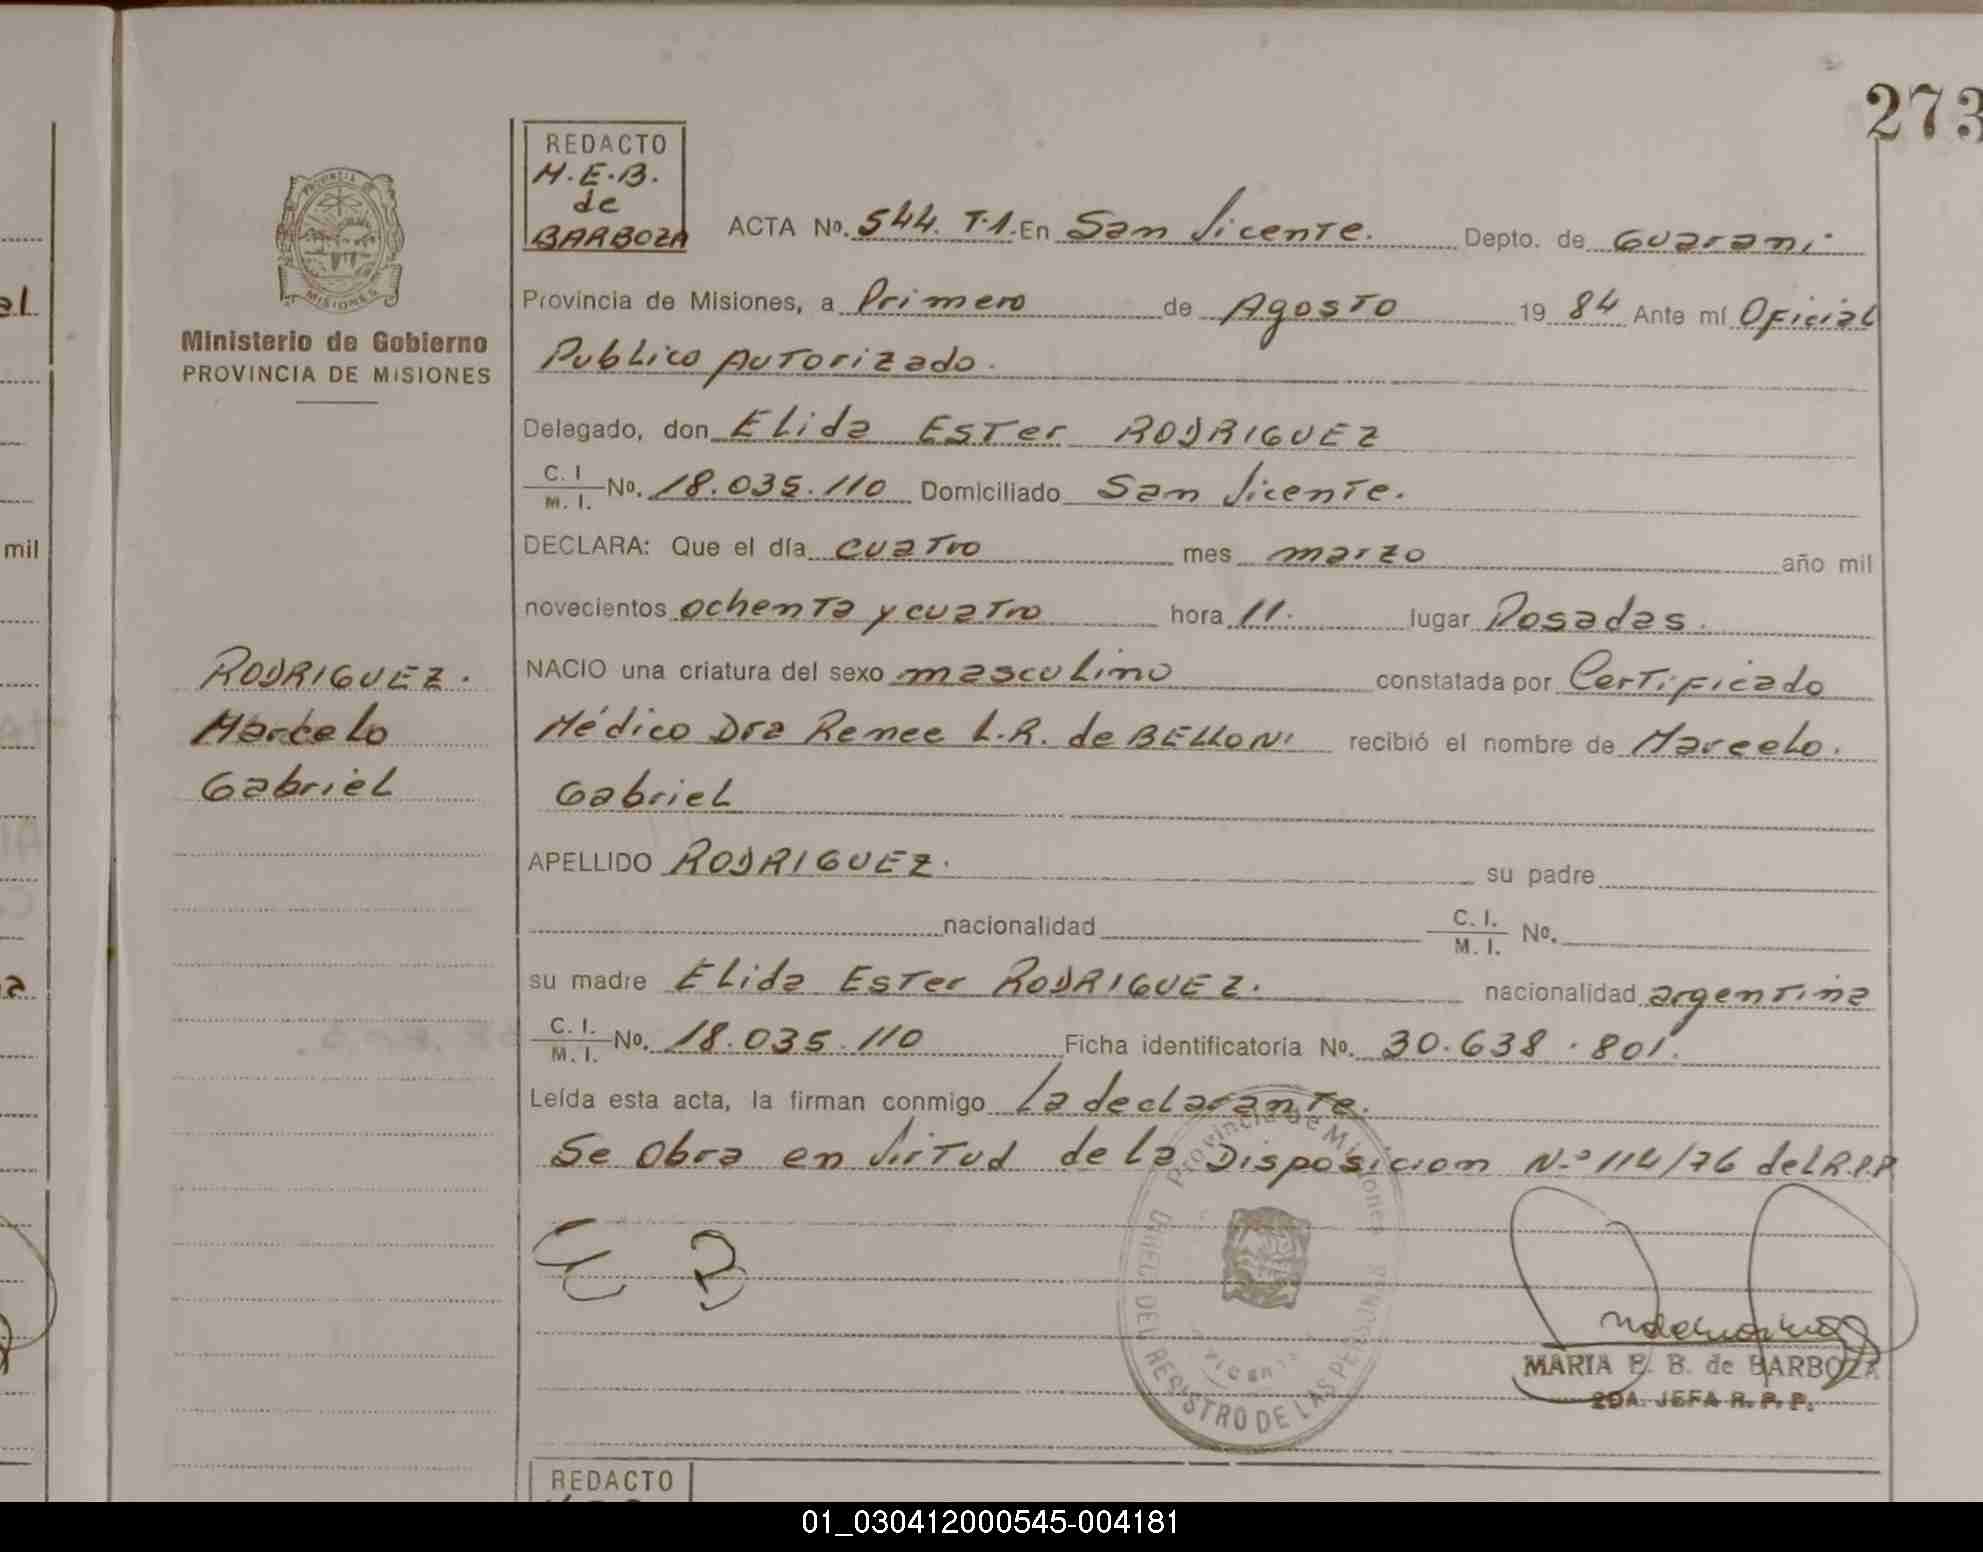 273
REDACTO
M.E.B.
de
BARBOZA
ACTA No. 544. T.1. En San Vicente. Depto. de Guarani
Provincia de Misiones, a Primero de Agosto 19 84 Ante mí Oficial
Publico Autorizado.
PROVINCIA DE
MISIONES
Ministerio de Gobierno
PROVINCIA DE MISIONES
Delegado, don Elida Ester RODRIGUEZ
C. I. / M. I. No. 18.035.110 Domiciliado San Vicente.
DECLARA: Que el día cuatro mes marzo año mil
novecientos ochenta y cuatro hora 11. lugar Posadas.
NACIO una criatura del sexo masculino constatada por Certificado
Médico Dra Renee L.R. de BELLONI recibió el nombre de Marcelo.
Gabriel
RODRIGUEZ.
Marcelo
Gabriel
APELLIDO RODRIGUEZ. su padre
nacionalidad C. I. / M. I. No.
su madre Elida Ester RODRIGUEZ. nacionalidad argentina
C. I. / M. I. No. 18.035.110 Ficha identificatoria No. 30.638.801.
Leída esta acta, la firman conmigo La declarante.
Se Obra en Virtud de la Disposicion N.º 114/76 del R.P.P
Provincia de Misiones
REGISTRO DE LAS PERSONAS
E B
MARIA E. B. de BARBOZA
2DA. JEFA R. P. P.
REDACTO
al
mil
01_030412000545-004181